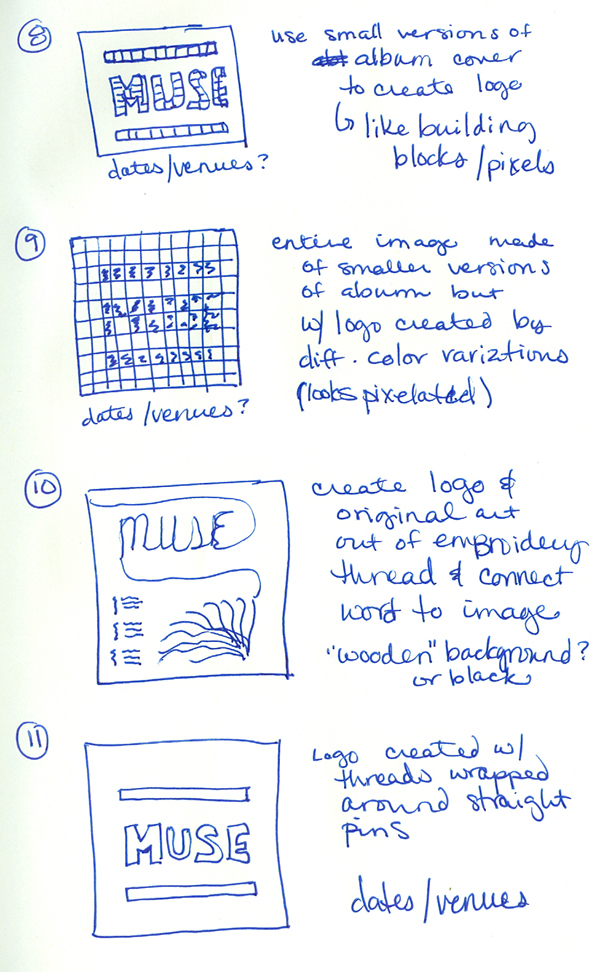 8
MUSE
dates/venues?
use small versions of
album cover
to create logo
↳ like building
blocks/pixels
9
dates/venues?
entire image made
of smaller versions
of album but
w/ logo created by
diff. color variztions
(looks pixelated)
10
MUSE
create logo &
original art
out of embroidery
thread & connect
word to image
"wooden" background?
or black
11
MUSE
Logo created w/
threads wrapped
around straight
pins
dates/venues